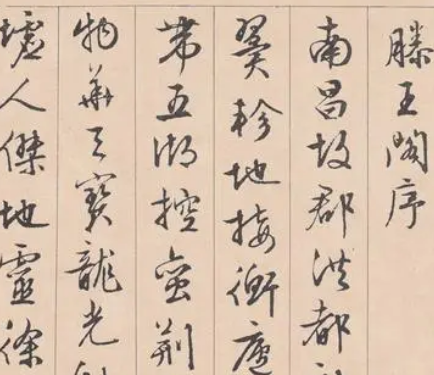 滕王閣序
南昌故郡洪都
翼軫地接衡廬
帶五湖控蛮荊
物華天寶龍光
墟人傑地靈徐